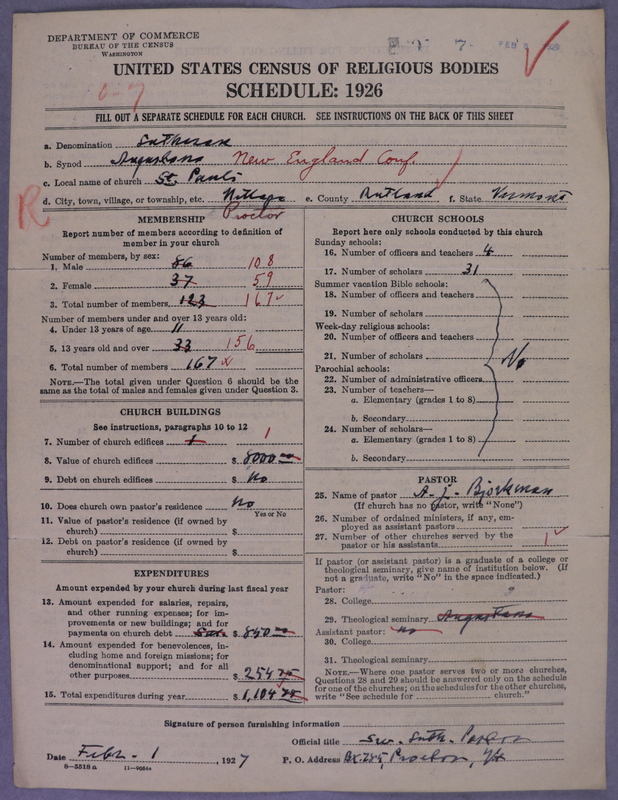 DEPARTMENT OF COMMERCE
BUREAU OF THE CENSUS
WASHINGTON
7 FEB
UNITED STATES CENSUS OF RELIGIOUS BODIES
SCHEDULE: 1926
FILL OUT A SEPARATE SCHEDULE FOR EACH CHURCH. SEE INSTRUCTIONS ON THE BACK OF THIS SHEET
a. Denomination Lutheran
b. Synod Augustana New England Conf.
c. Local name of church St. Pauls
d. City, town, village, or township, etc. Village e. County Rutland f. State Vermont
R Proctor
MEMBERSHIP
Report number of members according to definition of
member in your church
Number of members, by sex:
1. Male 86 108
2. Female 37 59
3. Total number of members 123 167
Number of members under and over 13 years old:
4. Under 13 years of age 11
5. 13 years old and over 33 156
6. Total number of members 167
NOTE.—The total given under Question 6 should be the
same as the total of males and females given under Question 3.
CHURCH BUILDINGS
See instructions, paragraphs 10 to 12
7. Number of church edifices 1 1
8. Value of church edifices $ 8000
9. Debt on church edifices $ No
10. Does church own pastor's residence No
Yes or No
11. Value of pastor's residence (if owned by
church) $
12. Debt on pastor's residence (if owned by
church) $
EXPENDITURES
Amount expended by your church during last fiscal year
13. Amount expended for salaries, repairs,
and other running expenses; for im-
provements or new buildings; and for
payments on church debt $ 850
14. Amount expended for benevolences, in-
cluding home and foreign missions; for
denominational support; and for all
other purposes $ 254
15. Total expenditures during year $ 1,104
CHURCH SCHOOLS
Report here only schools conducted by this church
Sunday schools:
16. Number of officers and teachers 4
17. Number of scholars 31
Summer vacation Bible schools:
18. Number of officers and teachers
19. Number of scholars
Week-day religious schools:
20. Number of officers and teachers
21. Number of scholars No
Parochial schools:
22. Number of administrative officers
23. Number of teachers—
a. Elementary (grades 1 to 8)
b. Secondary
24. Number of scholars—
a. Elementary (grades 1 to 8)
b. Secondary
PASTOR
25. Name of pastor A. J. Bjorkman
(If church has no pastor, write "None")
26. Number of ordained ministers, if any, em-
ployed as assistant pastors
27. Number of other churches served by the
pastor or his assistants 1
If pastor (or assistant pastor) is a graduate of a college or
theological seminary, give name of institution below. (If
not a graduate, write "No" in the space indicated.)
Pastor:
28. College
29. Theological seminary Augustana
Assistant pastor: no
30. College
31. Theological seminary
NOTE.—Where one pastor serves two or more churches,
Questions 28 and 29 should be answered only on the schedule
for one of the churches; on the schedules for the other churches,
write "See schedule for church."
Signature of person furnishing information
Official title Sw. Luth. Pastor
Date Feb. 1, 1927 P. O. Address Bx. 285, Proctor, Vt
8—5518 a 11—9684a